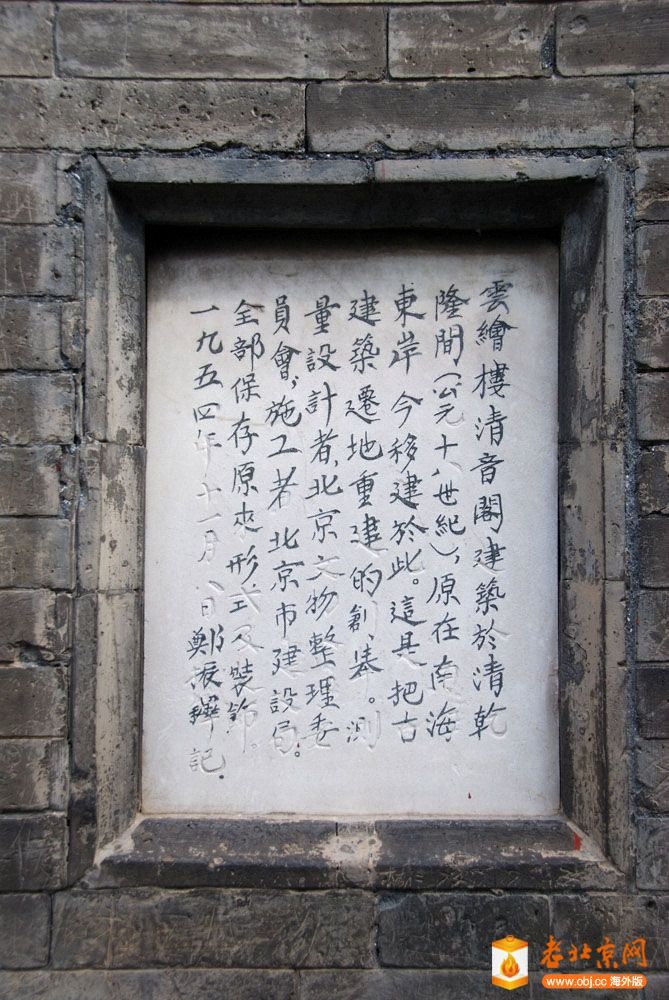 雲繪樓清音閣建築於清乾
隆間(公元十八世紀),原在南海
東岸 今移建於此。這是把古
建築遷地重建的創舉。測
量設計者,北京文物整理委
員會,施工者 北京市建設局。
全部保存原來形式及裝飾。
一九五四年十一月八日 鄭振鐸記.
老北京网
www.obj.cc 海外版